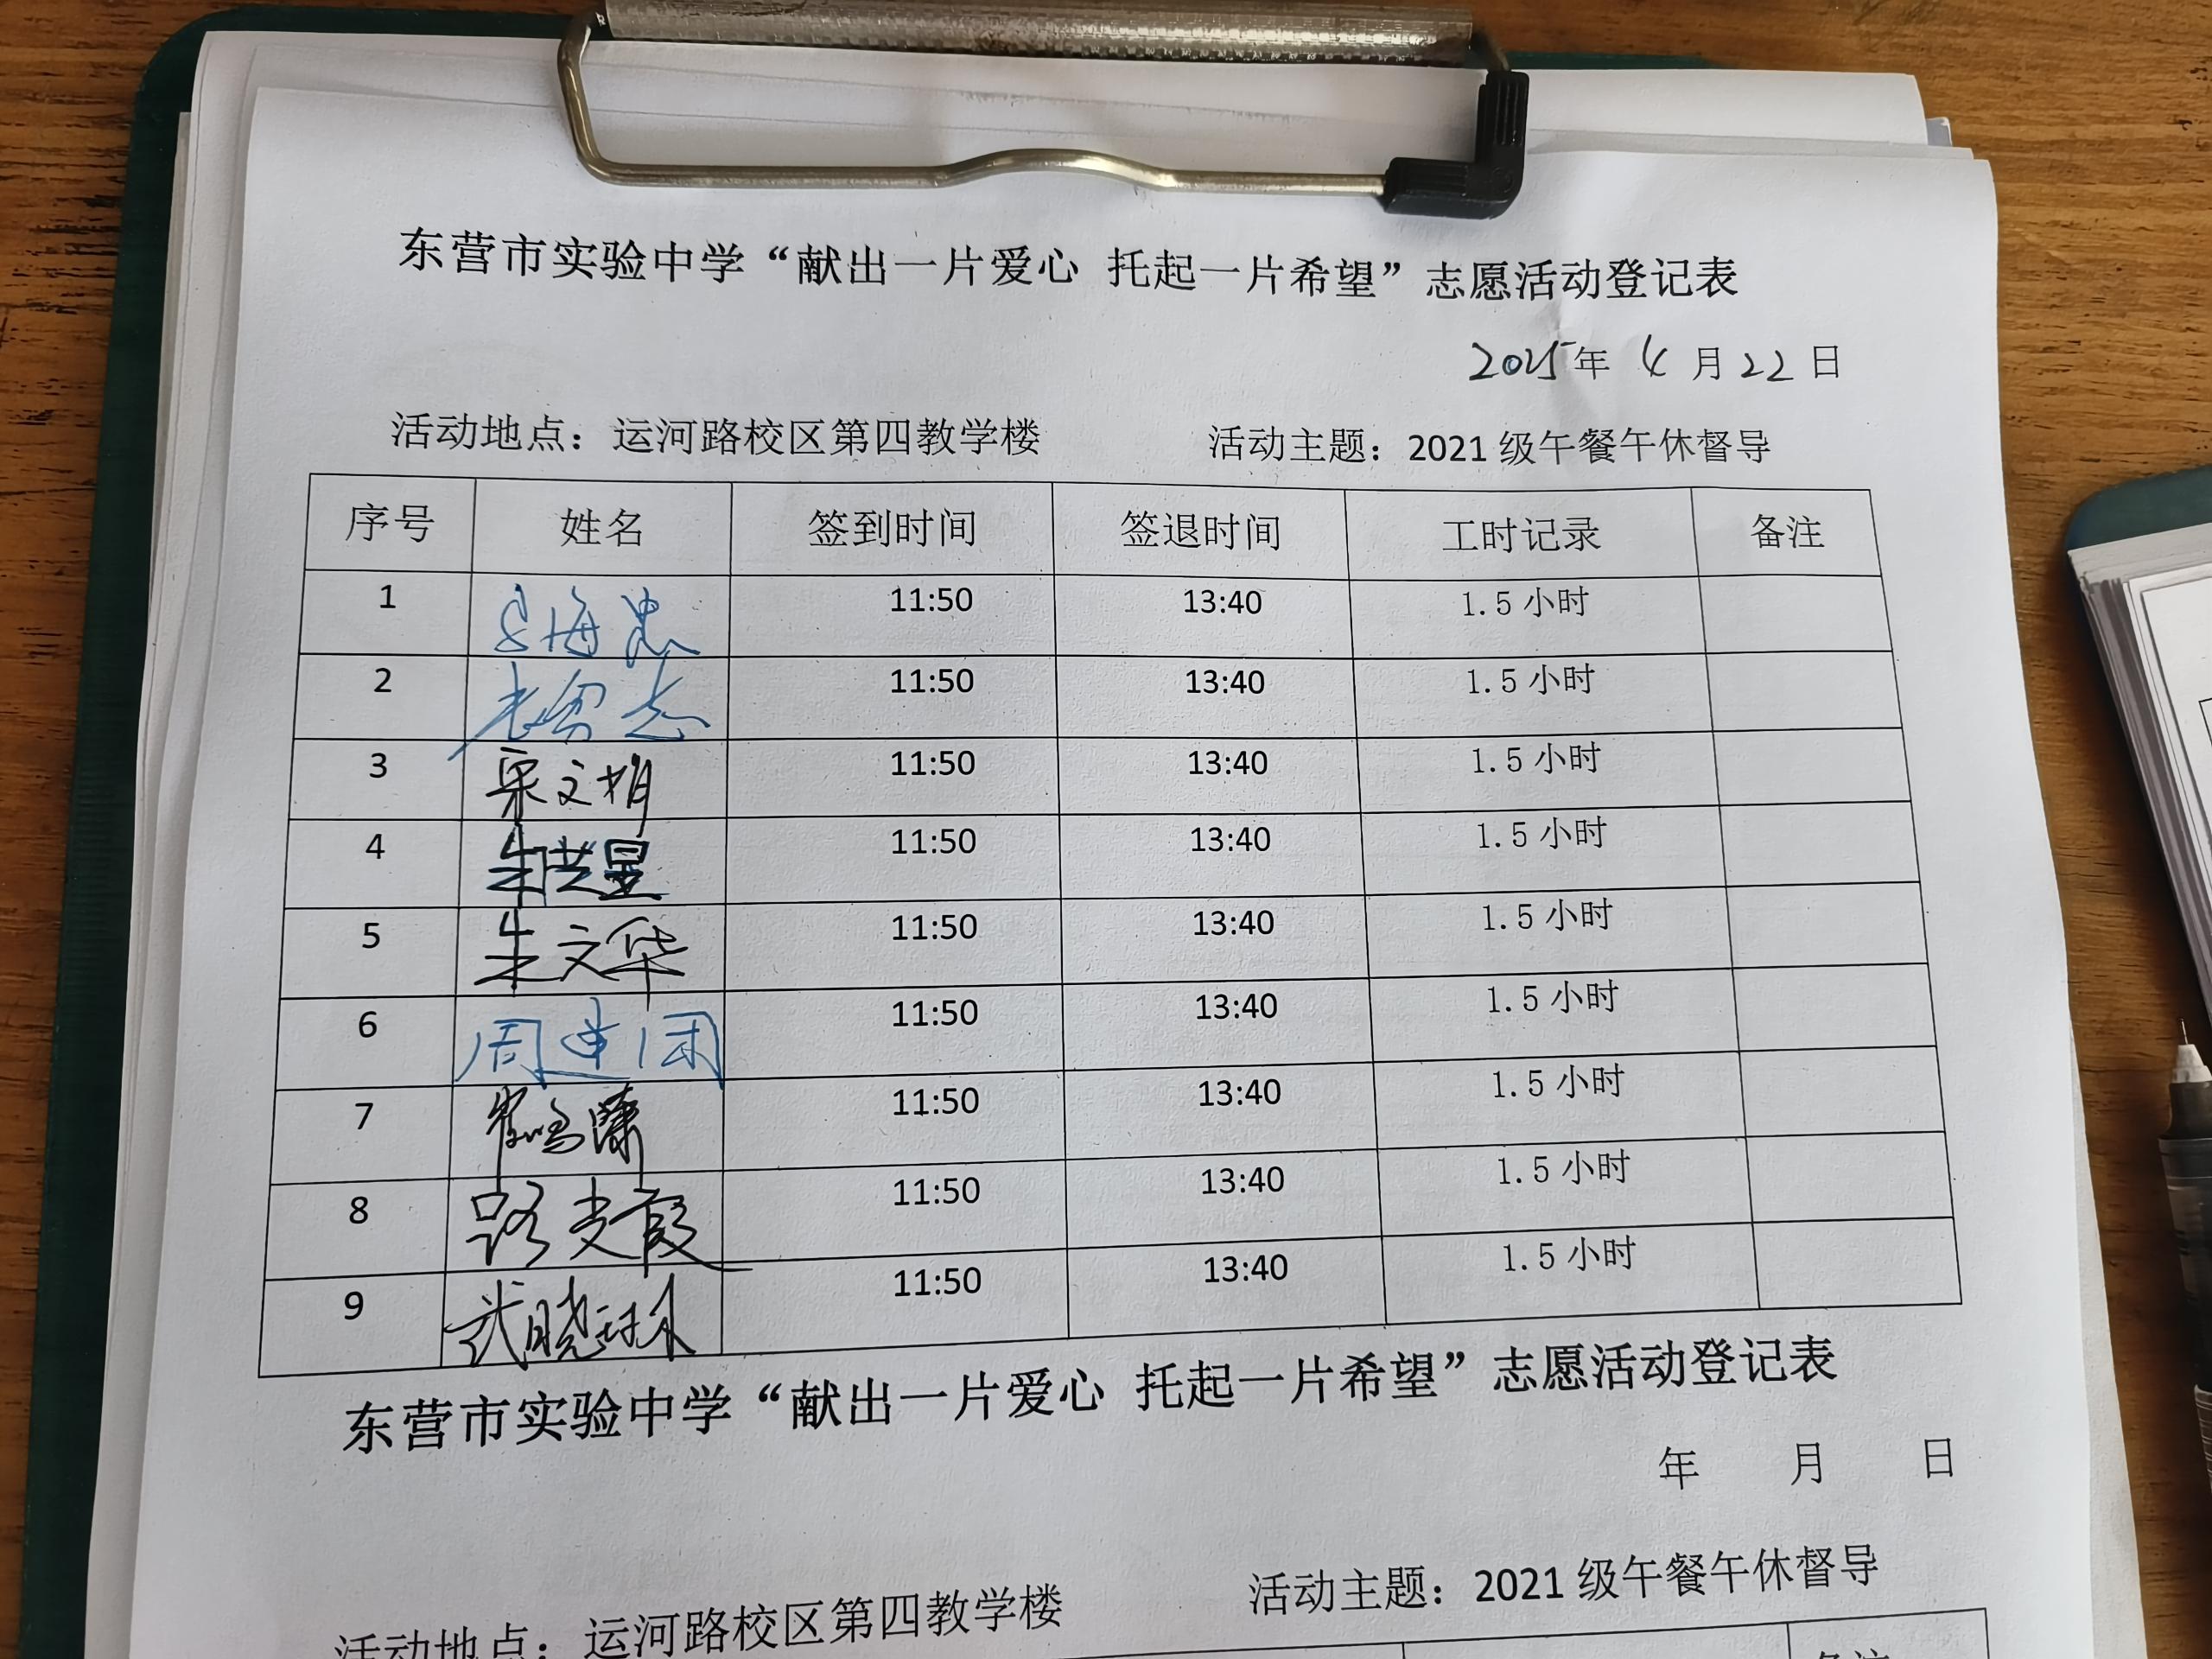 东营市实验中学“献出一片爱心 托起一片希望”志愿活动登记表
2025年 4 月 22 日
活动地点：运河路校区第四教学楼 活动主题：2021 级午餐午休督导
序号 姓名 签到时间 签退时间 工时记录 备注
1 11:50 13:40 1.5 小时
2 11:50 13:40 1.5 小时
3 宋文娟 11:50 13:40 1.5 小时
4 朱洪星 11:50 13:40 1.5 小时
5 朱文华 11:50 13:40 1.5 小时
6 周建国 11:50 13:40 1.5 小时
7 11:50 13:40 1.5 小时
8 路 霞 11:50 13:40 1.5 小时
9 武晓琳 11:50 13:40 1.5 小时
东营市实验中学“献出一片爱心 托起一片希望”志愿活动登记表
年 月 日
活动地点：运河路校区第四教学楼 活动主题：2021 级午餐午休督导
备注